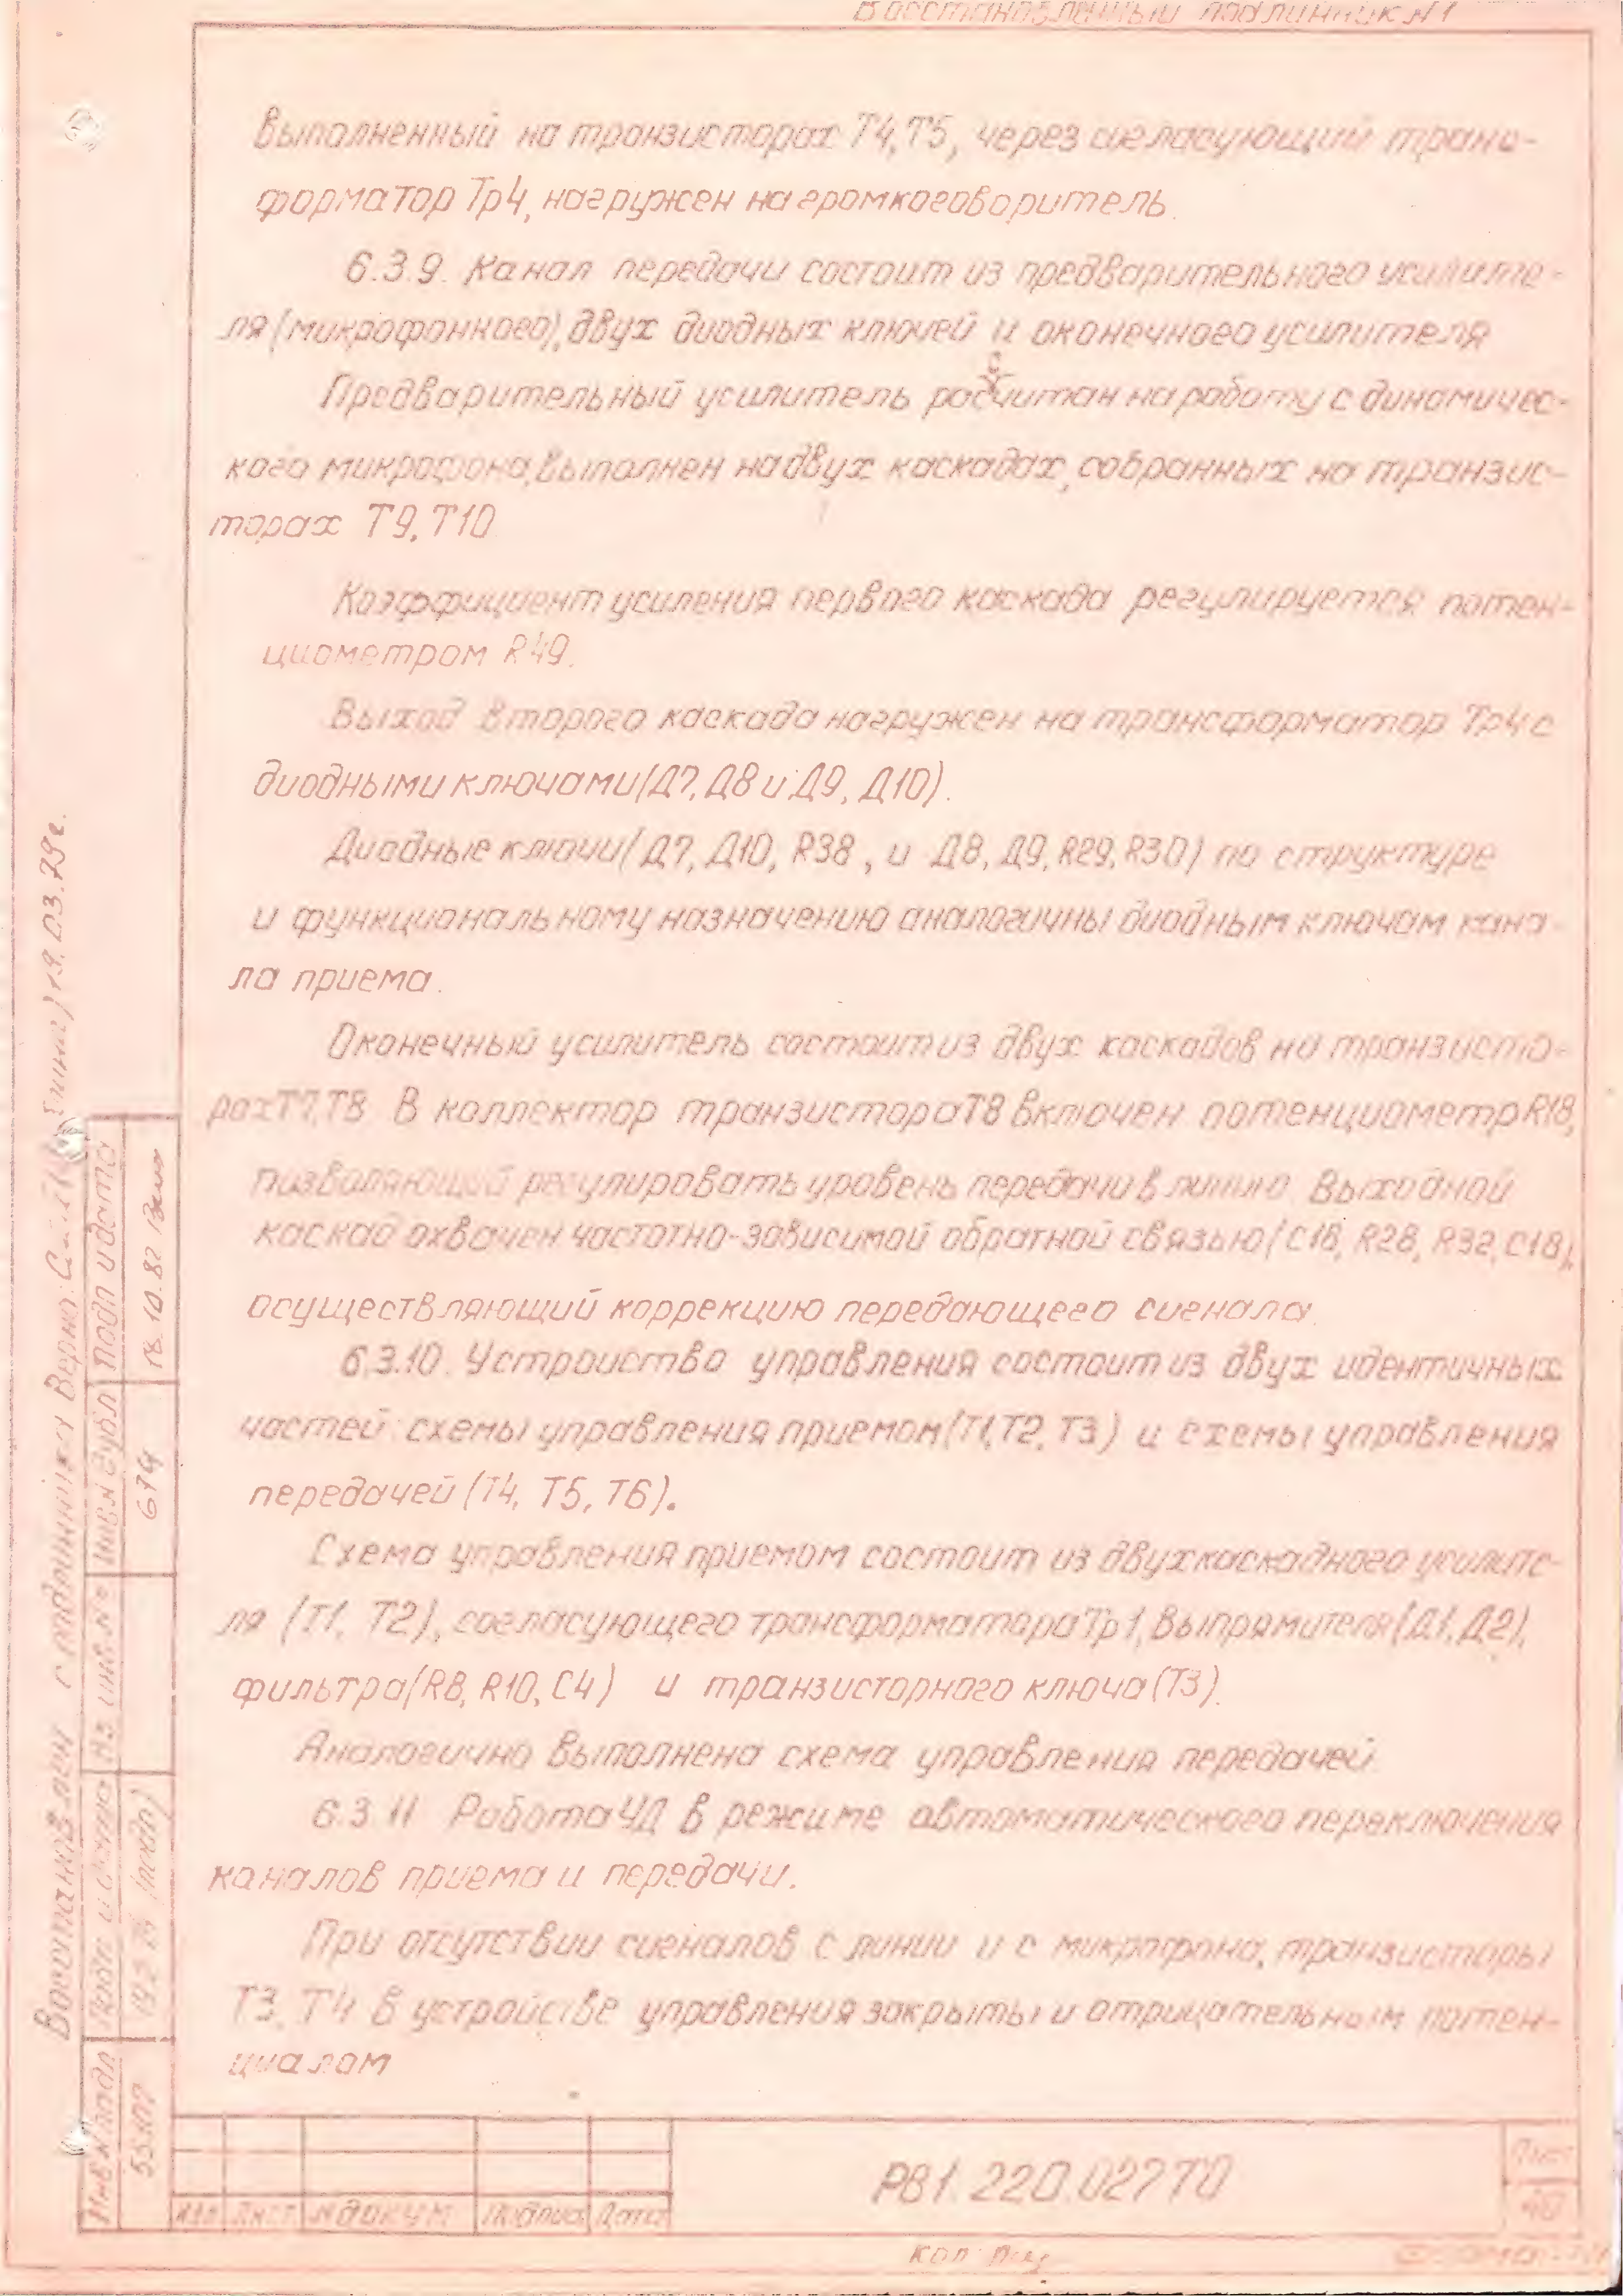 Восстановленный подлинник №1
выполненный на транзисторах Т4, Т5, через согласующий транс-
форматор Тр4, нагружен на громкоговоритель.
6.3.9. Канал передачи состоит из предварительного усилите-
ля (микрофонного), двух диодных ключей и оконечного усилителя
Предварительный усилитель расчитан на работу с динамичес-
кого микрофона, выполнен на двух каскадах, собранных на транзис-
торах Т9, Т10
Коэффициент усиления первого каскада регулируется потен-
циометром R49.
Выход второго каскада нагружен на трансформатор Тр4 с
диодными ключами (Д7, Д8 и Д9, Д10).
Диодные ключи (Д7, Д10, R38, и Д8, Д9, R29, R30) по структуре
и функциональному назначению аналогичны диодным ключам кана-
ла приема.
Оконечный усилитель состоит из двух каскадов на транзисто-
рах Т7, Т8. В коллектор транзистора Т8 включен потенциометр R18,
позволяющий регулировать уровень передачи в линию. Выходной
каскад охвачен частотно-зависимой обратной связью (С16, R28, R32, С18),
осуществляющий коррекцию передающего сигнала
6.3.10. Устроиство управления состоит из двух идентичных
частей: схемы управления приемом (Т1, Т2, Т3) и схемы управления
передачей (Т4, Т5, Т6).
Схема управления приемом состоит из двухкаскадного усилите-
ля (Т1, Т2), согласующего трансформатора Тр1, выпрямителя (Д1, Д2),
фильтра (R8, R10, С4) и транзисторного ключа (Т3).
Аналогично выполнена схема управления передачей.
6.3.11 Работа УД в режиме автоматического переключения
каналов приема и передачи.
При отсутствии сигналов с линии и с микрофона, транзисторы
Т3, Т4 в устройстве управления закрыты и отрицательным потен-
циалом
Восстановлен с подлинника Верно: 19.03.29г.
Подп и дата
18.10.82
Инв № дубл
674
Вз инв №
Подп и дата
(подп)
Инв № подл
Изм Лист № докум Подпись Дата
РВ1.220.027ТО
Лист
40
Коп:
Формат